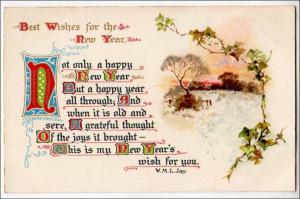 Best Wishes for the
New Year.
Not only a happy
New Year,
But a happy year
all through; And
when it is old and
sere, A grateful thought
Of the joys it brought—
This is my New Year's
wish for you.
W.M.L. Jay.